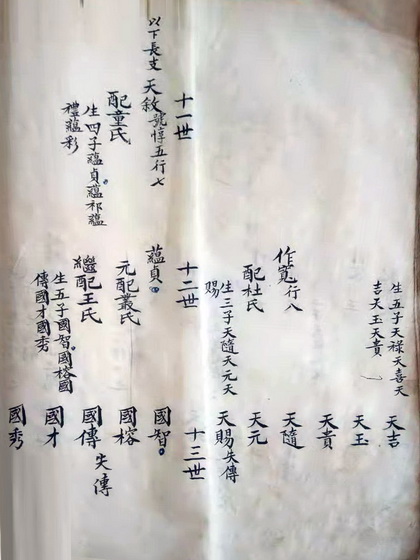 生五子天祿天喜天
吉天玉天貴
作寬行八
配杜氏
生三子天隨天元天
賜
天吉
天玉
天貴
天隨
天元
天賜失傳
十一世
以下長支
天敘號惇五行七
配童氏
生四子蘊貞蘊祁蘊
禮蘊彩
十二世
蘊貞
元配叢氏
繼配王氏
生五子國智國榕國
傳國才國秀
十三世
國智
國榕
國傳失傳
國才
國秀